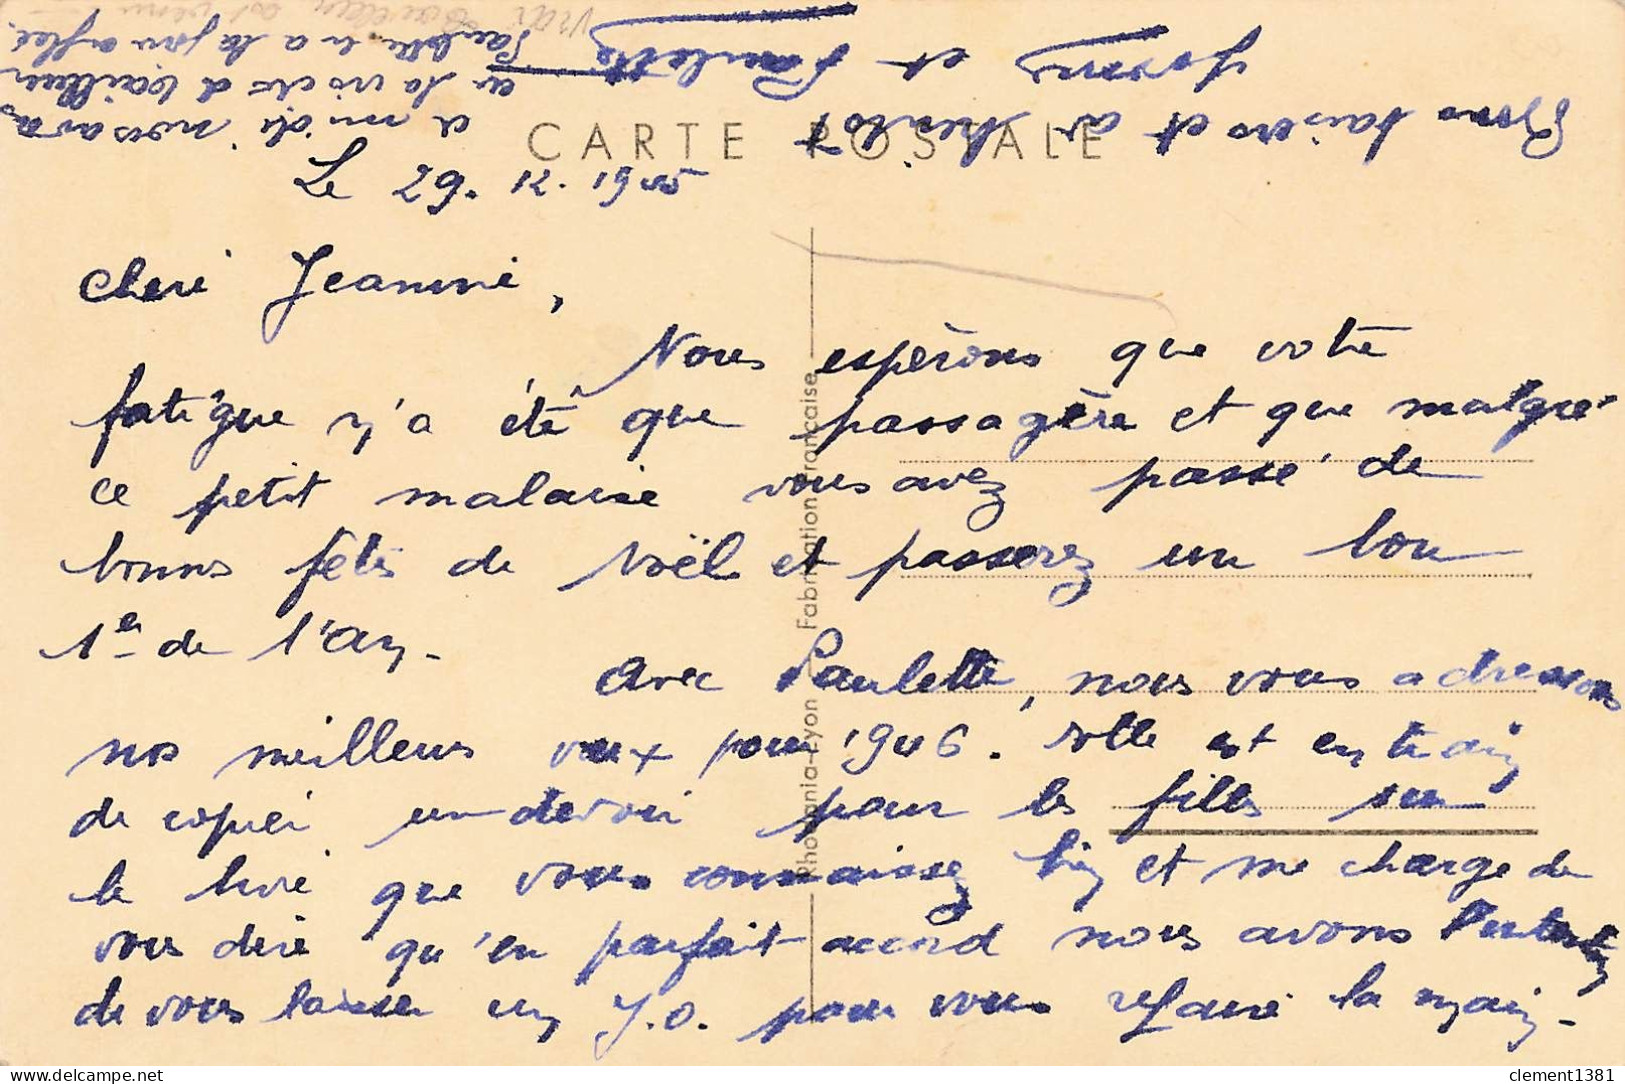 CARTE POSTALE
Le 29.12.1945
Cheri Jeannine,
Nous espérons que votre
fatigue n'a été que passagère et que malgré
ce petit malaise vous avez passé de
bonnes fêtes de Noël et passerez un bon
1er de l'an.
Avec Paulette, nous vous adressons
nos meilleurs vœux pour 1946. Elle est en train
de copier un devoir pour les filles sur
le livre que vous connaissez bien et me charge de
vous dire qu'en parfait accord nous avons l'intention
de vous laisser un J.O. pour vous refaire la main.
Bons baisers et à bientôt
et Paulette
a midi nous avons
eu la visite d
Paulette en a la
Rhodania-Lyon Fabrication Française
clement1381